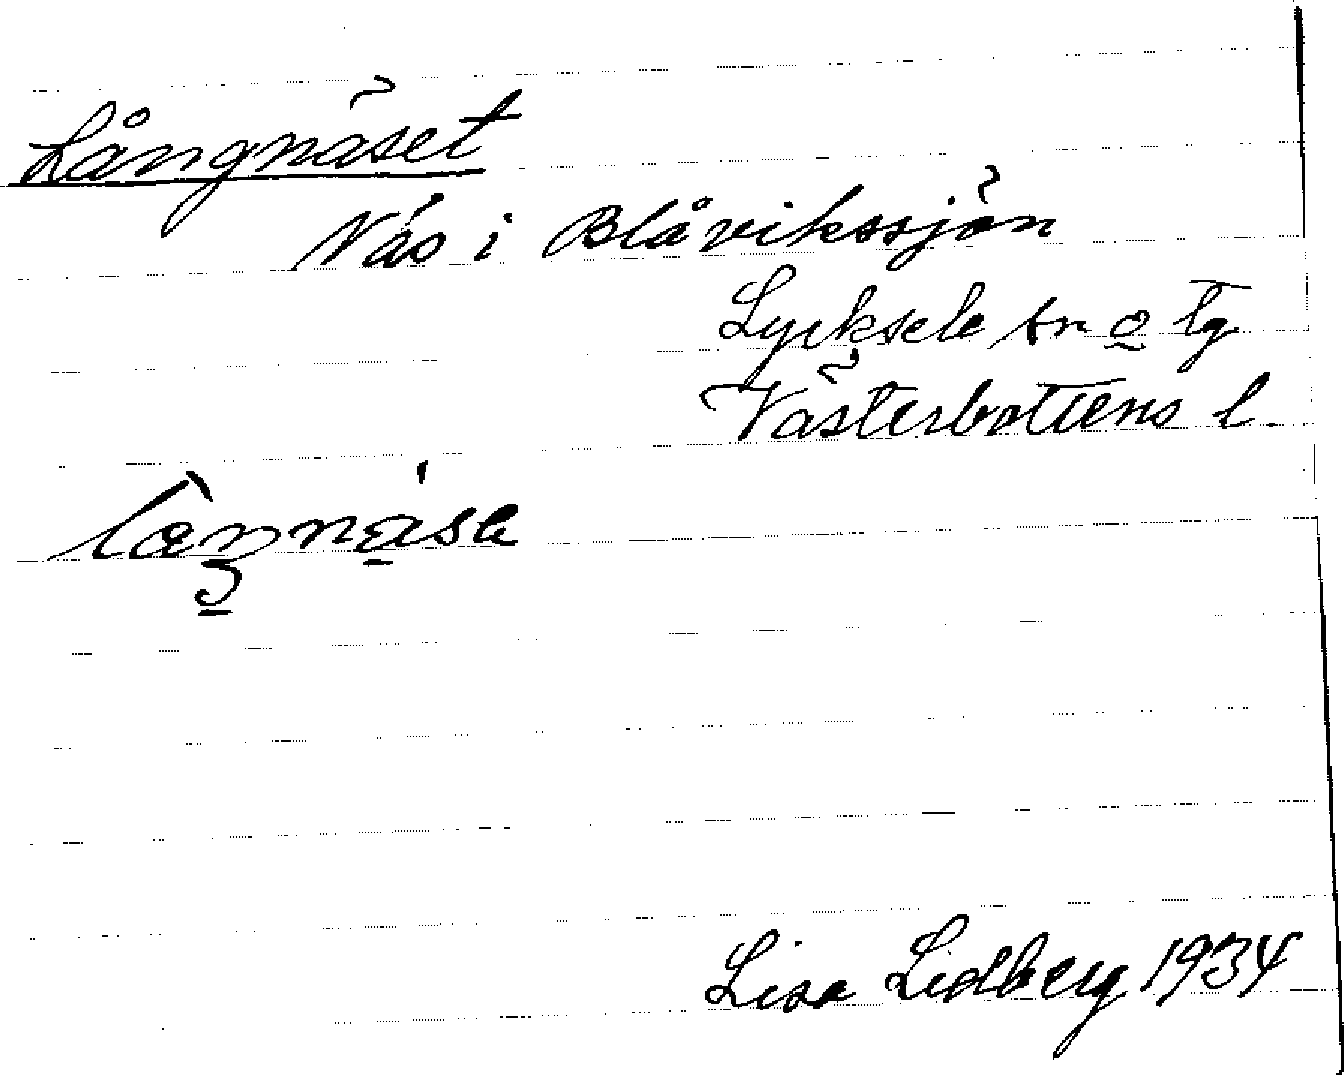 Långnäset
Näs i Blåvikssjön
Lycksele sn o tg
Västerbottens l.
Lisa Lidberg 1934